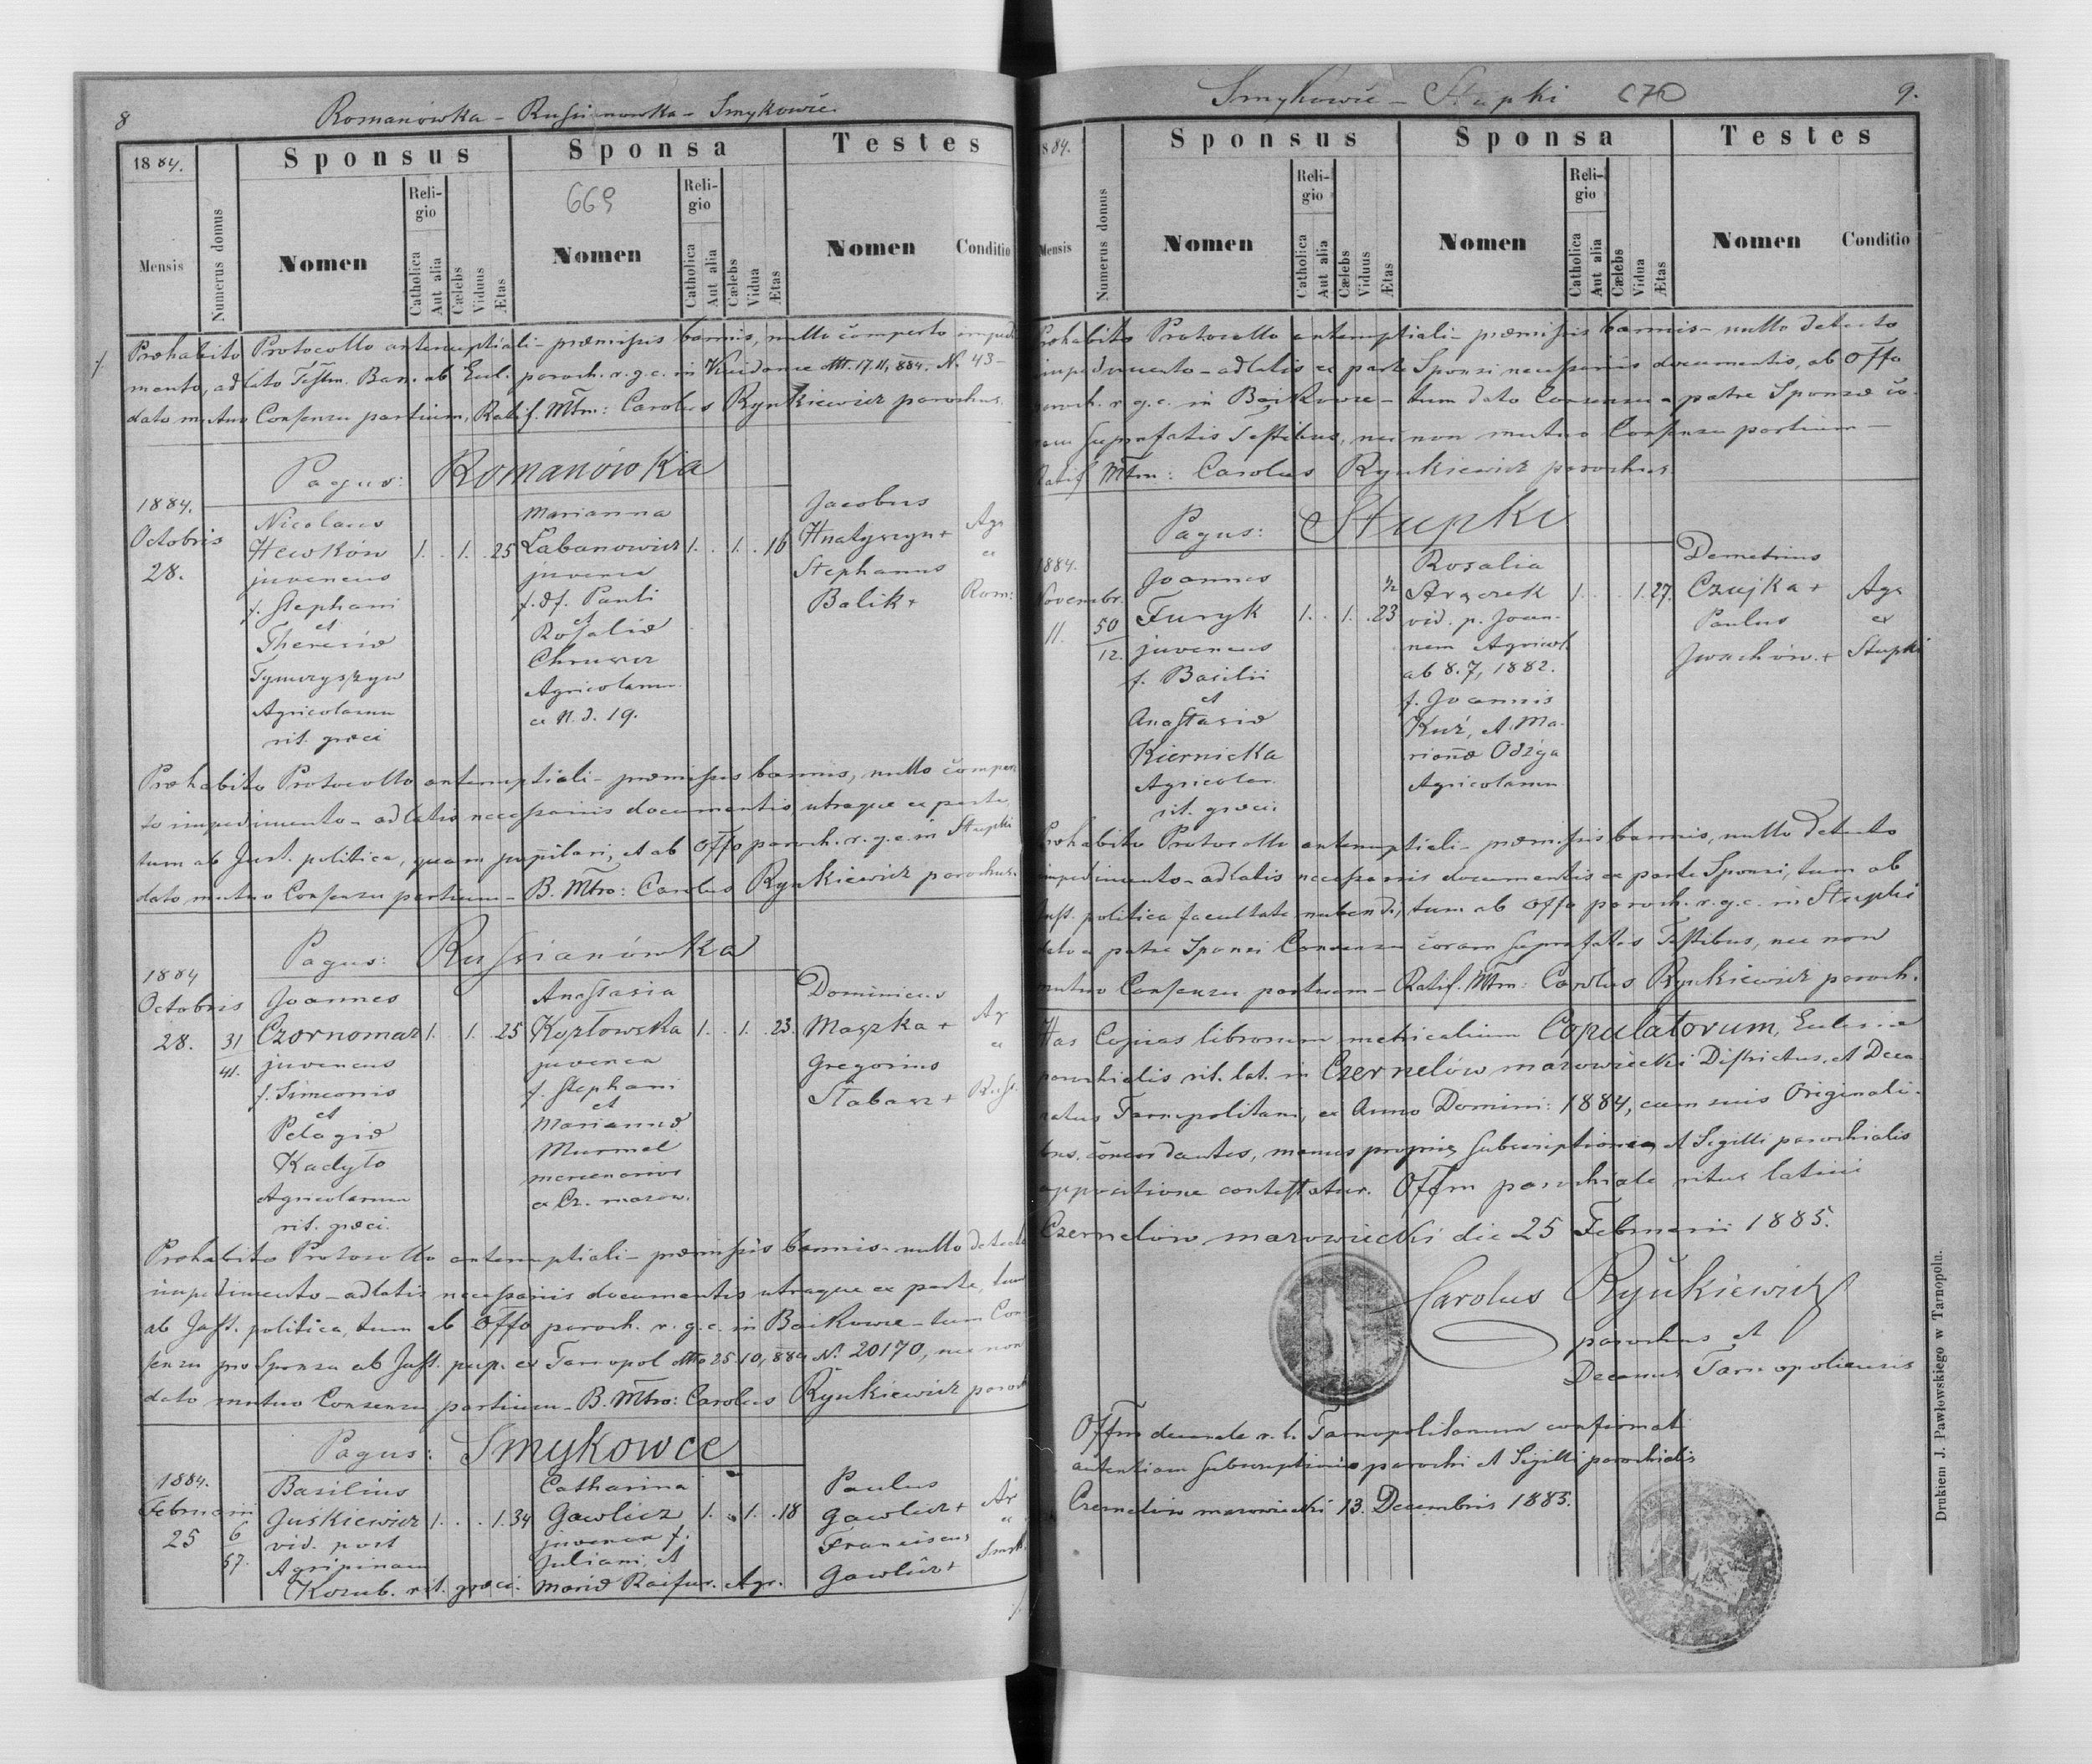 8
Romanówka - Russianowka - Smykowce
1884.
Sponsus
Sponsa
Testes
669
Mensis
Numerus domus
Nomen
Religio
Catholica
Aut alia
Cælebs
Viduus
Ætas
Nomen
Religio
Catholica
Aut alia
Cælebs
Vidua
Ætas
Nomen
Conditio
Præhabito Protocollo antenuptiali - præmissis bannis, nullo comperto impedi
mento, adlato Testm. Bann. ab Eccl. paroch. r. g. c. in 17.11, 884. N. 43 -
dato mutuo Consensu partium, Ratif. Mtm: Carolus Rynkiewicz parochus.
Pagus: Romanówka
1884.
Octobris
28.
Nicolaus
Hewków
juvencus
f. Stephani
et
Theresiæ
Tymczyszyn
Agricolarum
rit. græci
1. . 1. . 25
Marianna
Łabanowicz
juvenca
f. df. Pauli
et
Rosaliæ
Chruszcz
Agricolarum
ex N. d. 19.
1. . 1. . 16
Jacobus
Hnatyszyn +
Stephanus
Balik +
Agr
ex
Rom:
Præhabito Protocollo antenuptiali - præmissis bannis, nullo comper
to impedimento - adlatis necessariis documentis utraque ex parte
tum ab Just. politica, quam pupilari, et ab Offo paroch. r. g. c. in Stupki
dato mutuo Consensu partium - B. Mtro: Carolus Rynkiewicz parochus.
Pagus: Russianówka
1884
Octobris
28.
31
41.
Joannes
Czornomaz
juvencus
f. Simeonis
et
Pelagiæ
Kadyło
Agricolarum
rit. græci.
1. . 1. . 25
Anastasia
Kozłowska
juvenca
f. Stephani
et
Mariannæ
Murmel
mercenarior
ex Cz. mazow.
1. . 1. . 23.
Dominicus
Maszka +
Gregorius
Słabasz +
Ag
ex
Russ.
Præhabito Protocollo antenuptiali - præmissis bannis - nullo detecto
impedimento - adlatis necessariis documentis utraque ex parte, tum
ab Just. politica, tum ab Offo paroch. r. g. c. in Baikowce - tum Con-
sensu pro Sponsa ab Just. pup. ex Tarnopol dtto 25.10, 884 N. 20170, nec non
dato mutuo Consensu partium - B. Mtro: Carolus Rynkiewicz paroch
Pagus: Smykowce
1884.
Februarii
25
6
67.
Basilius
Juskiewicz
vid. post
Agripinam
Kozub. rit. græci.
1. . . 1. 34
Catharina
Gawlicz
juvenca f.
Juliani, et
Mariæ Raifur. Agr.
1. . 1. . 18
Paulus
Gawlicz +
Franciscus
Gawlicz +
Ag
ex
Smyk.
Smykowce - Stupki 670
9.
1884.
Sponsus
Sponsa
Testes
Mensis
Numerus domus
Nomen
Religio
Catholica
Aut alia
Cælebs
Viduus
Ætas
Nomen
Religio
Catholica
Aut alia
Cælebs
Vidua
Ætas
Nomen
Conditio
Præhabito Protocollo antenuptiali - præmissis bannis - nullo detecto
impedimento - adlatis ex parte Sponsi necessariis documentis, ab Offo
paroch. r. g. c. in Baikowce - tum dato Consensu a patre Sponsæ co-
ram suprafatis Testibus, nec non mutuo Consensu partium -
Ratif Mtm: Carolus Rynkiewicz parochus.
Pagus: Stupki
1884.
Novembr.
11.
50
12.
Joannes
Furyk
juvencus
f. Basilii
et
Anastasiæ
Kiernicka
Agricolar.
rit. græci.
1. . 1. . 23 ½
Rosalia
vid. p. Joan-
nem Agricol.
ab 8. 7, 1882.
f. Joannis
Kuź, et Ma-
riannæ Odzga
Agricolarum
1. . . 1. 27.
Demetrius
Czujka +
Paulus
Iwachów. +
Agr
ex
Stupki
Præhabito Protocollo antenuptiali - præmissis bannis, nullo detecto
impedimento - adlatis necessariis documentis ex parte Sponsi, tum ab
Just. politica facultate nubendi, tum ab Offo paroch. r. g. c. in Stupki
dato a patre Sponsi Consensu coram suprafatis Testibus, nec non
mutuo Consensu partium - Ratif. Mtm: Carolus Rynkiewicz paroch.
Has Copias librorum metricalium Copulatorum, Ecclesiæ
parochialis rit. lat. in Czernelów mazowiecki Districtus, et Deca-
natus Tarnopolitani, ex Anno Domini: 1884, cum suis Originali-
bus, concordantes, manus propriæ subscriptione, et Sigilli parochialis
appositione contestatur. Offm parochiale ritus latini
Czernelów mazowiecki die 25 Februarii 1885.
Carolus Rynkiewicz
parochus et
Decanus Tarnopoliensis
Offm decanale r. l. Tarnopolitanum confirmat
autentiam subscriptionis parochi et Sigilli parochialis
Czernelów mazowiecki 13. Decembris 1885.
Drukiem J. Pawłowskiego w Tarnopolu.